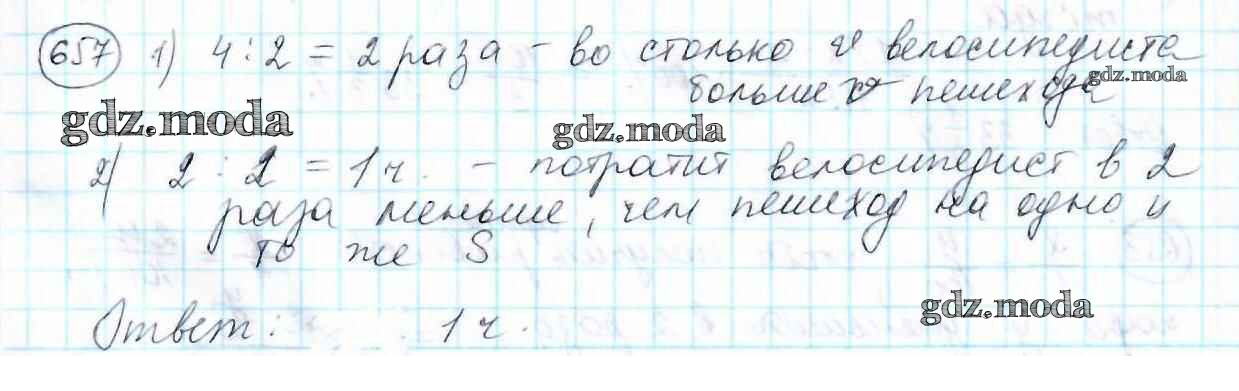 657 1) 4 : 2 = 2 раза – во столько v велосипедиста
больше v пешехода
gdz.moda
gdz.moda
gdz.moda
2) 2 : 2 = 1 ч. – потратит велосипедист в 2
раза меньше, чем пешеход на одно и
то же S
gdz.moda
Ответ: 1 ч.